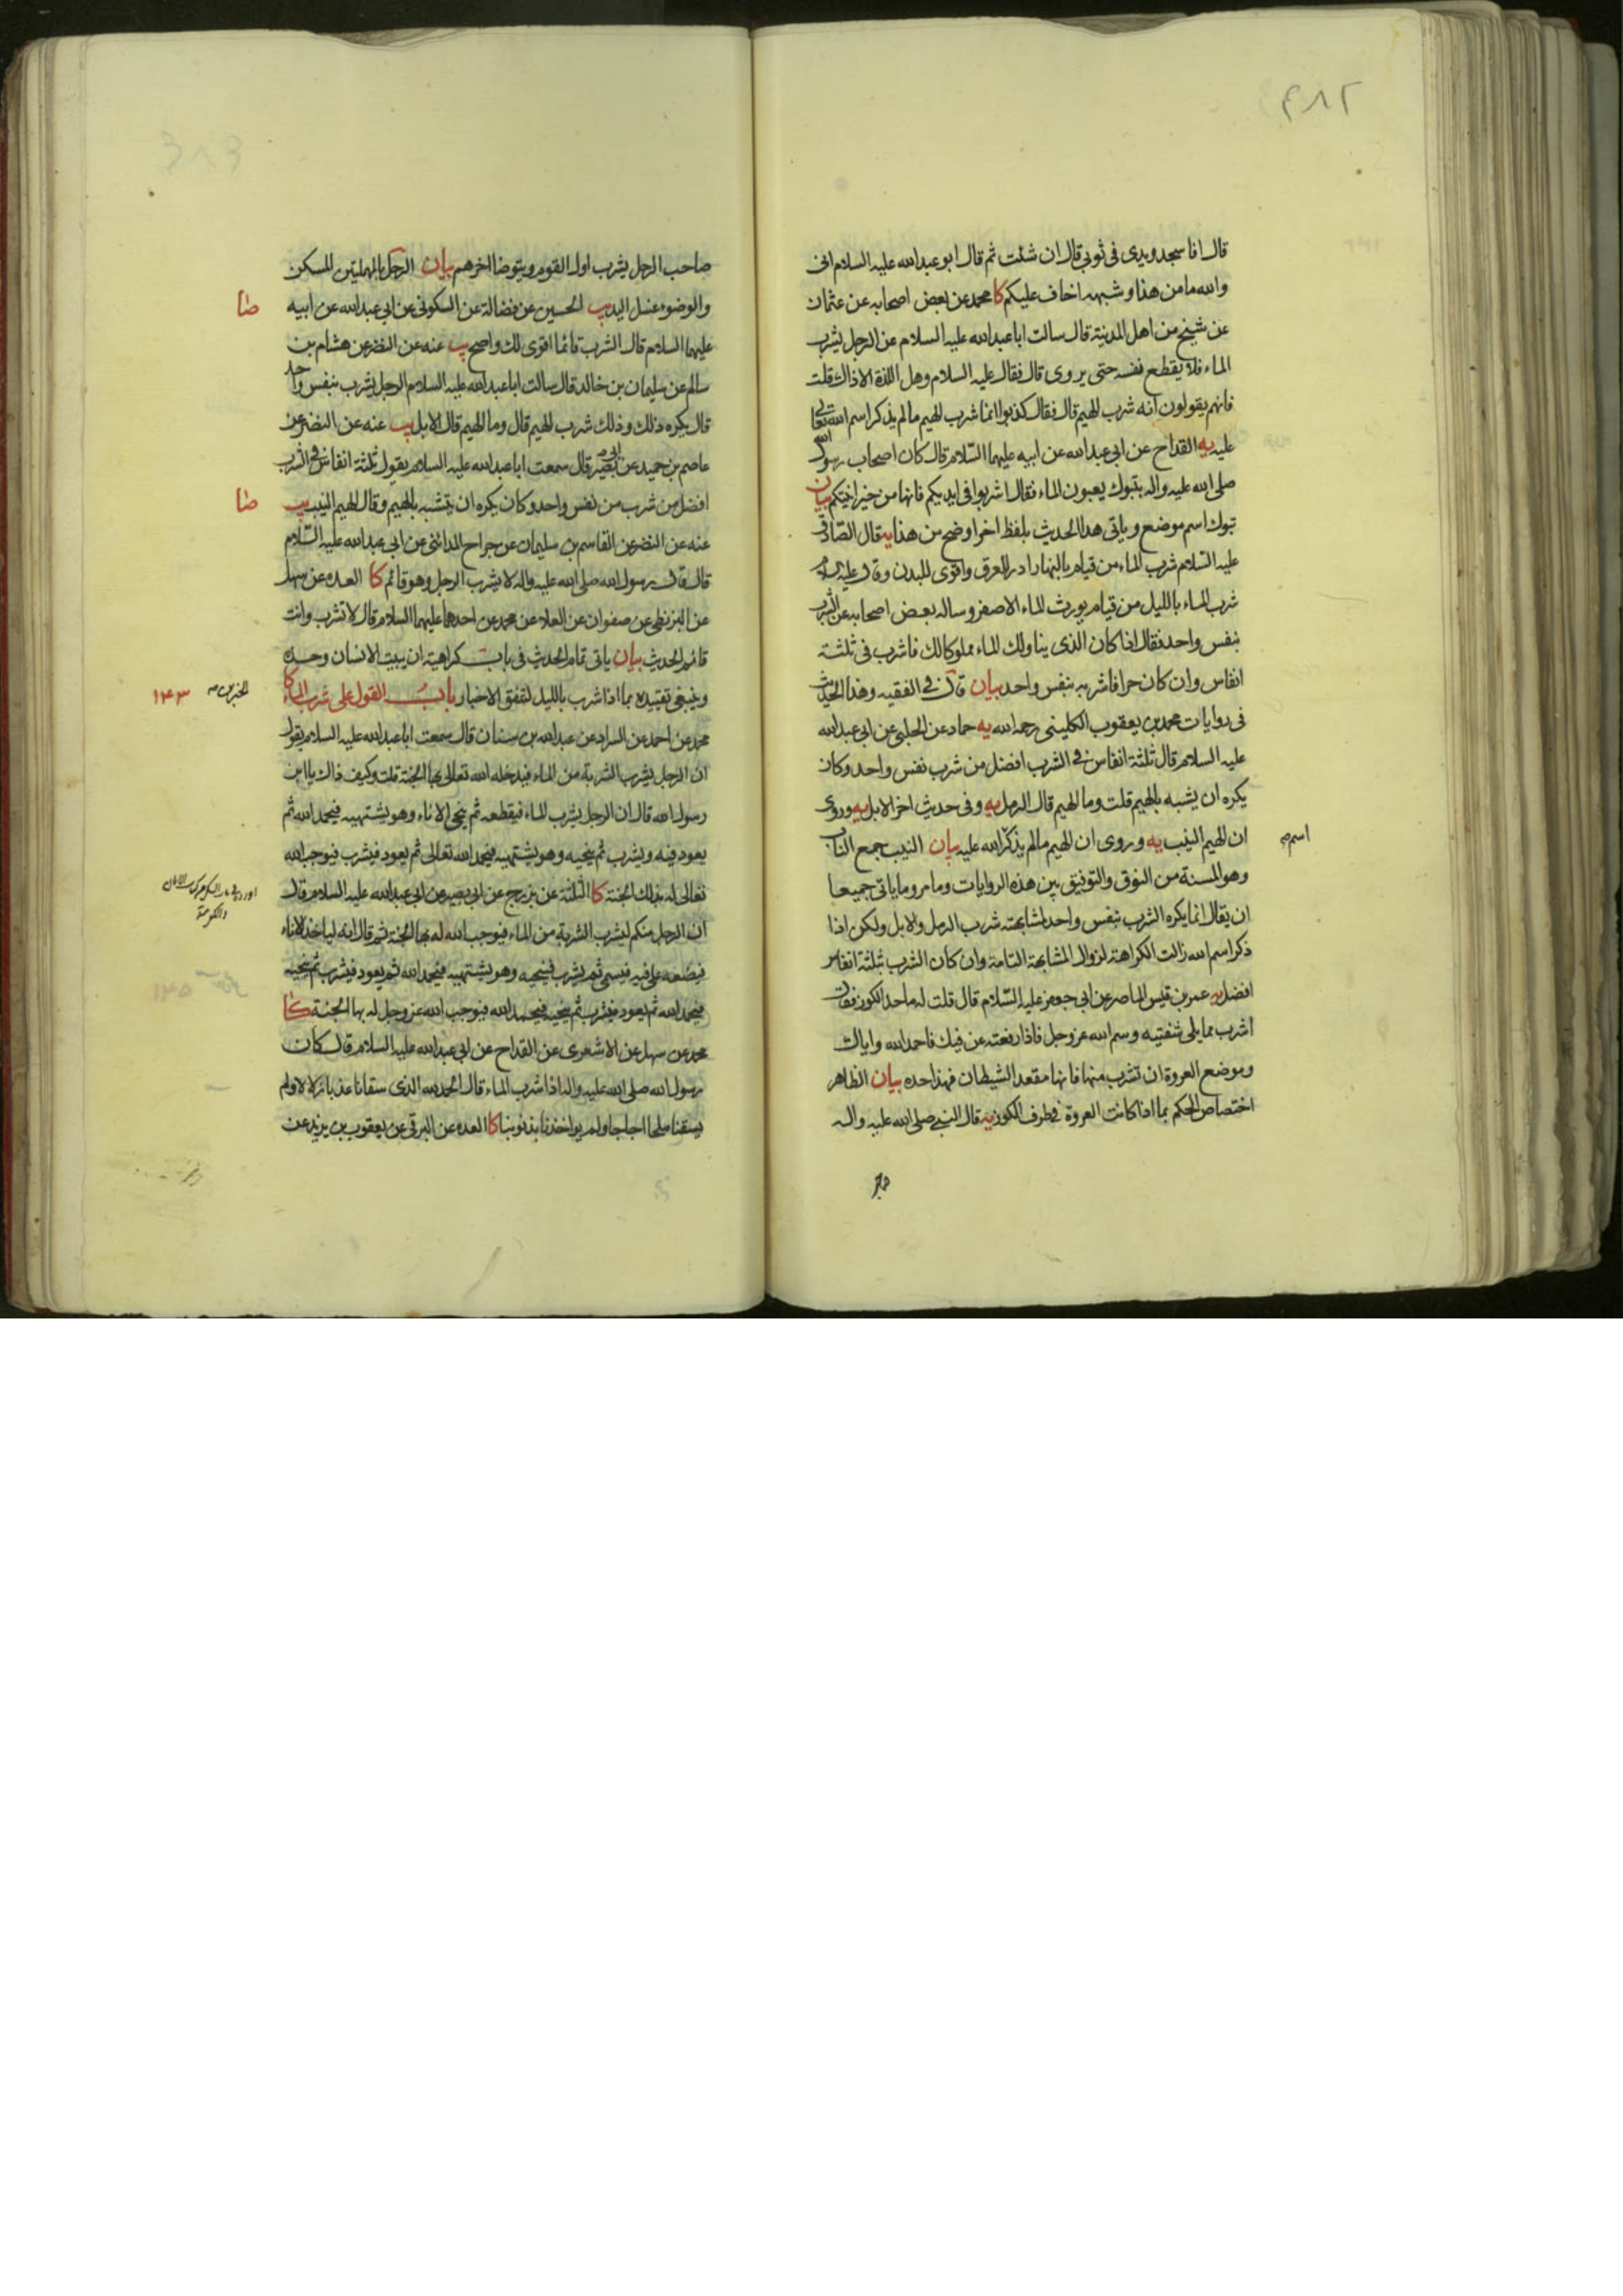 ٤٨٢
قال افاسجد ويدى فى ثوبى قال ان شئت ثم قال ابو عبدالله عليه السلام انى
والله ما من هذا وشبهه اخاف عليكم كا محمد عن بعض اصحابه عن عثمان
عن شيخ من اهل المدينة قال سالت اباعبدالله عليه السلام عن الرجل يشرب
الماء فلا يقطع نفسه حتى يروى قال فقال عليه السلام وهل اللذة الا ذاك قلت
فانهم يقولون انه شرب الهيم قال فقال كذبوا انما شرب الهيم ما لم يذكر اسم الله تعالى
عليه يه القداح عن ابى عبدالله عن ابيه عليهما السلام قال كان اصحاب رسول الله
صلى الله عليه واله بتبوك يعبون الماء فقال اشربوا فى ايديكم فانها من خير انيتكم بيان
تبوك اسم موضع وياتى هذا الحديث بلفظ اخر اوضح من هذا يه قال الصادق
عليه السلام شرب الماء من قيام بالنهار ادر للعرق واقوى للبدن وقال عليه السلام
شرب الماء بالليل من قيام يورث الماء الاصفر وساله بعض اصحابه عن الشرب
بنفس واحد فقال اذا كان الذى يناولك الماء مملوكا لك فاشرب فى ثلثة
انفاس وان كان حرا فاشربه بنفس واحد بيان قال فى الفقيه وهذا الحديث
فى روايات محمد بن يعقوب الكلينى رحمه الله يه حماد عن الحلبى عن ابى عبدالله
عليه السلام قال ثلثة انفاس فى الشرب افضل من شرب نفس واحد وكان
يكره ان يشبه بالهيم قلت وما الهيم قال الرمل يه وفى حديث اخر الابل يه وروى
ان الهيم النيب يه وروى ان الهيم ما لم يذكر الله عليه بيان النيب جمع الناب
اسم صح
وهو المسنة من النوق والتوفيق بين هذه الروايات وما مر وما ياتى جميعا
ان يقال انما يكره الشرب بنفس واحد لمشابهته شرب الرمل والابل ولكن اذا
ذكر اسم الله زالت الكراهة لزوال المشابهة التامة وان كان الشرب بثلثة انفاس
افضل يه عمر بن قيس الماصر عن ابى جعفر عليه السلام قال قلت له ما حد الكوز فقال
اشرب مما يلى شفتيه وسم الله عز وجل فاذا رفعته عن فيك فاحمد الله واياك
وموضع العروة ان تشرب منها فانها مقعد الشيطان فهذا حده بيان الظاهر
اختصاص الحكم بما اذا كانت العروة فى طرف الكوز يه قال النبى صلى الله عليه واله
صاحب الرحل يشرب اول القوم ويتوضا اخرهم بيان الرحل بالمهملتين المسكن
والوضوء غسل اليد يب الحسين عن فضالة عن السكونى عن ابى عبدالله عن ابيه
صا
عليهما السلام قال الشرب قائما اقوى لك واصح يب عنه عن النضر عن هشام بن
سالم عن سليمان بن خالد قال سالت اباعبدالله عليه السلام الرجل يشرب بنفس واحد
قال يكره ذلك وذلك شرب الهيم قال وما الهيم قال الابل يب عنه عن النضر عن
عاصم بن حميد عن ابى بصير قال سمعت اباعبدالله عليه السلام يقول ثلثة انفاس فى الشرب
افضل من شرب من نفس واحد وكان يكره ان يتشبه بالهيم وقال الهيم النيب يب
صا
عنه عن النضر عن القاسم بن سليمان عن جراح المدائنى عن ابى عبدالله عليه السلام
قال قال رسول الله صلى الله عليه واله لا يشرب الرجل وهو قائم كا العده عن سهل
عن البزنطى عن صفوان عن العلاء عن محمد عن احدهما عليهما السلام قال لا تشرب وانت
قائم الحديث بيان ياتى تمام الحديث فى باب كراهية ان يبيت الانسان وحده
وينبغى تقييده بما اذا شرب بالليل لتتفق الاخبار باب القول على شرب الماء كا
الخبرين صح ١٤٣
محمد عن احمد عن السراد عن عبدالله بن سنان قال سمعت اباعبدالله عليه السلام يقول
ان الرجل يشرب الشربة من الماء فيدخله الله تعالى بها الجنة قلت وكيف ذاك يا ابن
رسول الله قال ان الرجل يشرب الماء فيقطعه ثم ينحى الاناء وهو يشتهيه فيحمد الله ثم
يعود فيه ويشرب ثم ينحيه وهو يشتهيه فيحمد الله تعالى ثم يعود فيشرب فيوجب الله
تعالى له بذلك الجنة كا الثلثة عن بزرج عن ابى بصير عن ابى عبدالله عليه السلام قال
ان الرجل منكم ليشرب الشربة من الماء فيوجب الله له بها الجنة ثم قال انه لياخذ الاناء
فيضعه على فيه فيسمى ثم يشرب فينحيه وهو يشتهيه فيحمد الله ثم يعود فيشرب ثم ينحيه
فيحمد الله ثم يعود فيشرب ثم ينحيه فيحمد الله فيوجب الله عز وجل له بها الجنة كا
محمد عن سهل عن الاشعرى عن القداح عن ابى عبدالله عليه السلام قال كان
رسول الله صلى الله عليه واله اذا شرب الماء قال الحمد لله الذى سقانا عذبا زلالا ولم
يسقنا ملحا اجاجا ولم يواخذنا بذنوبنا كا العده عن البرقى عن يعقوب بن يزيد عن